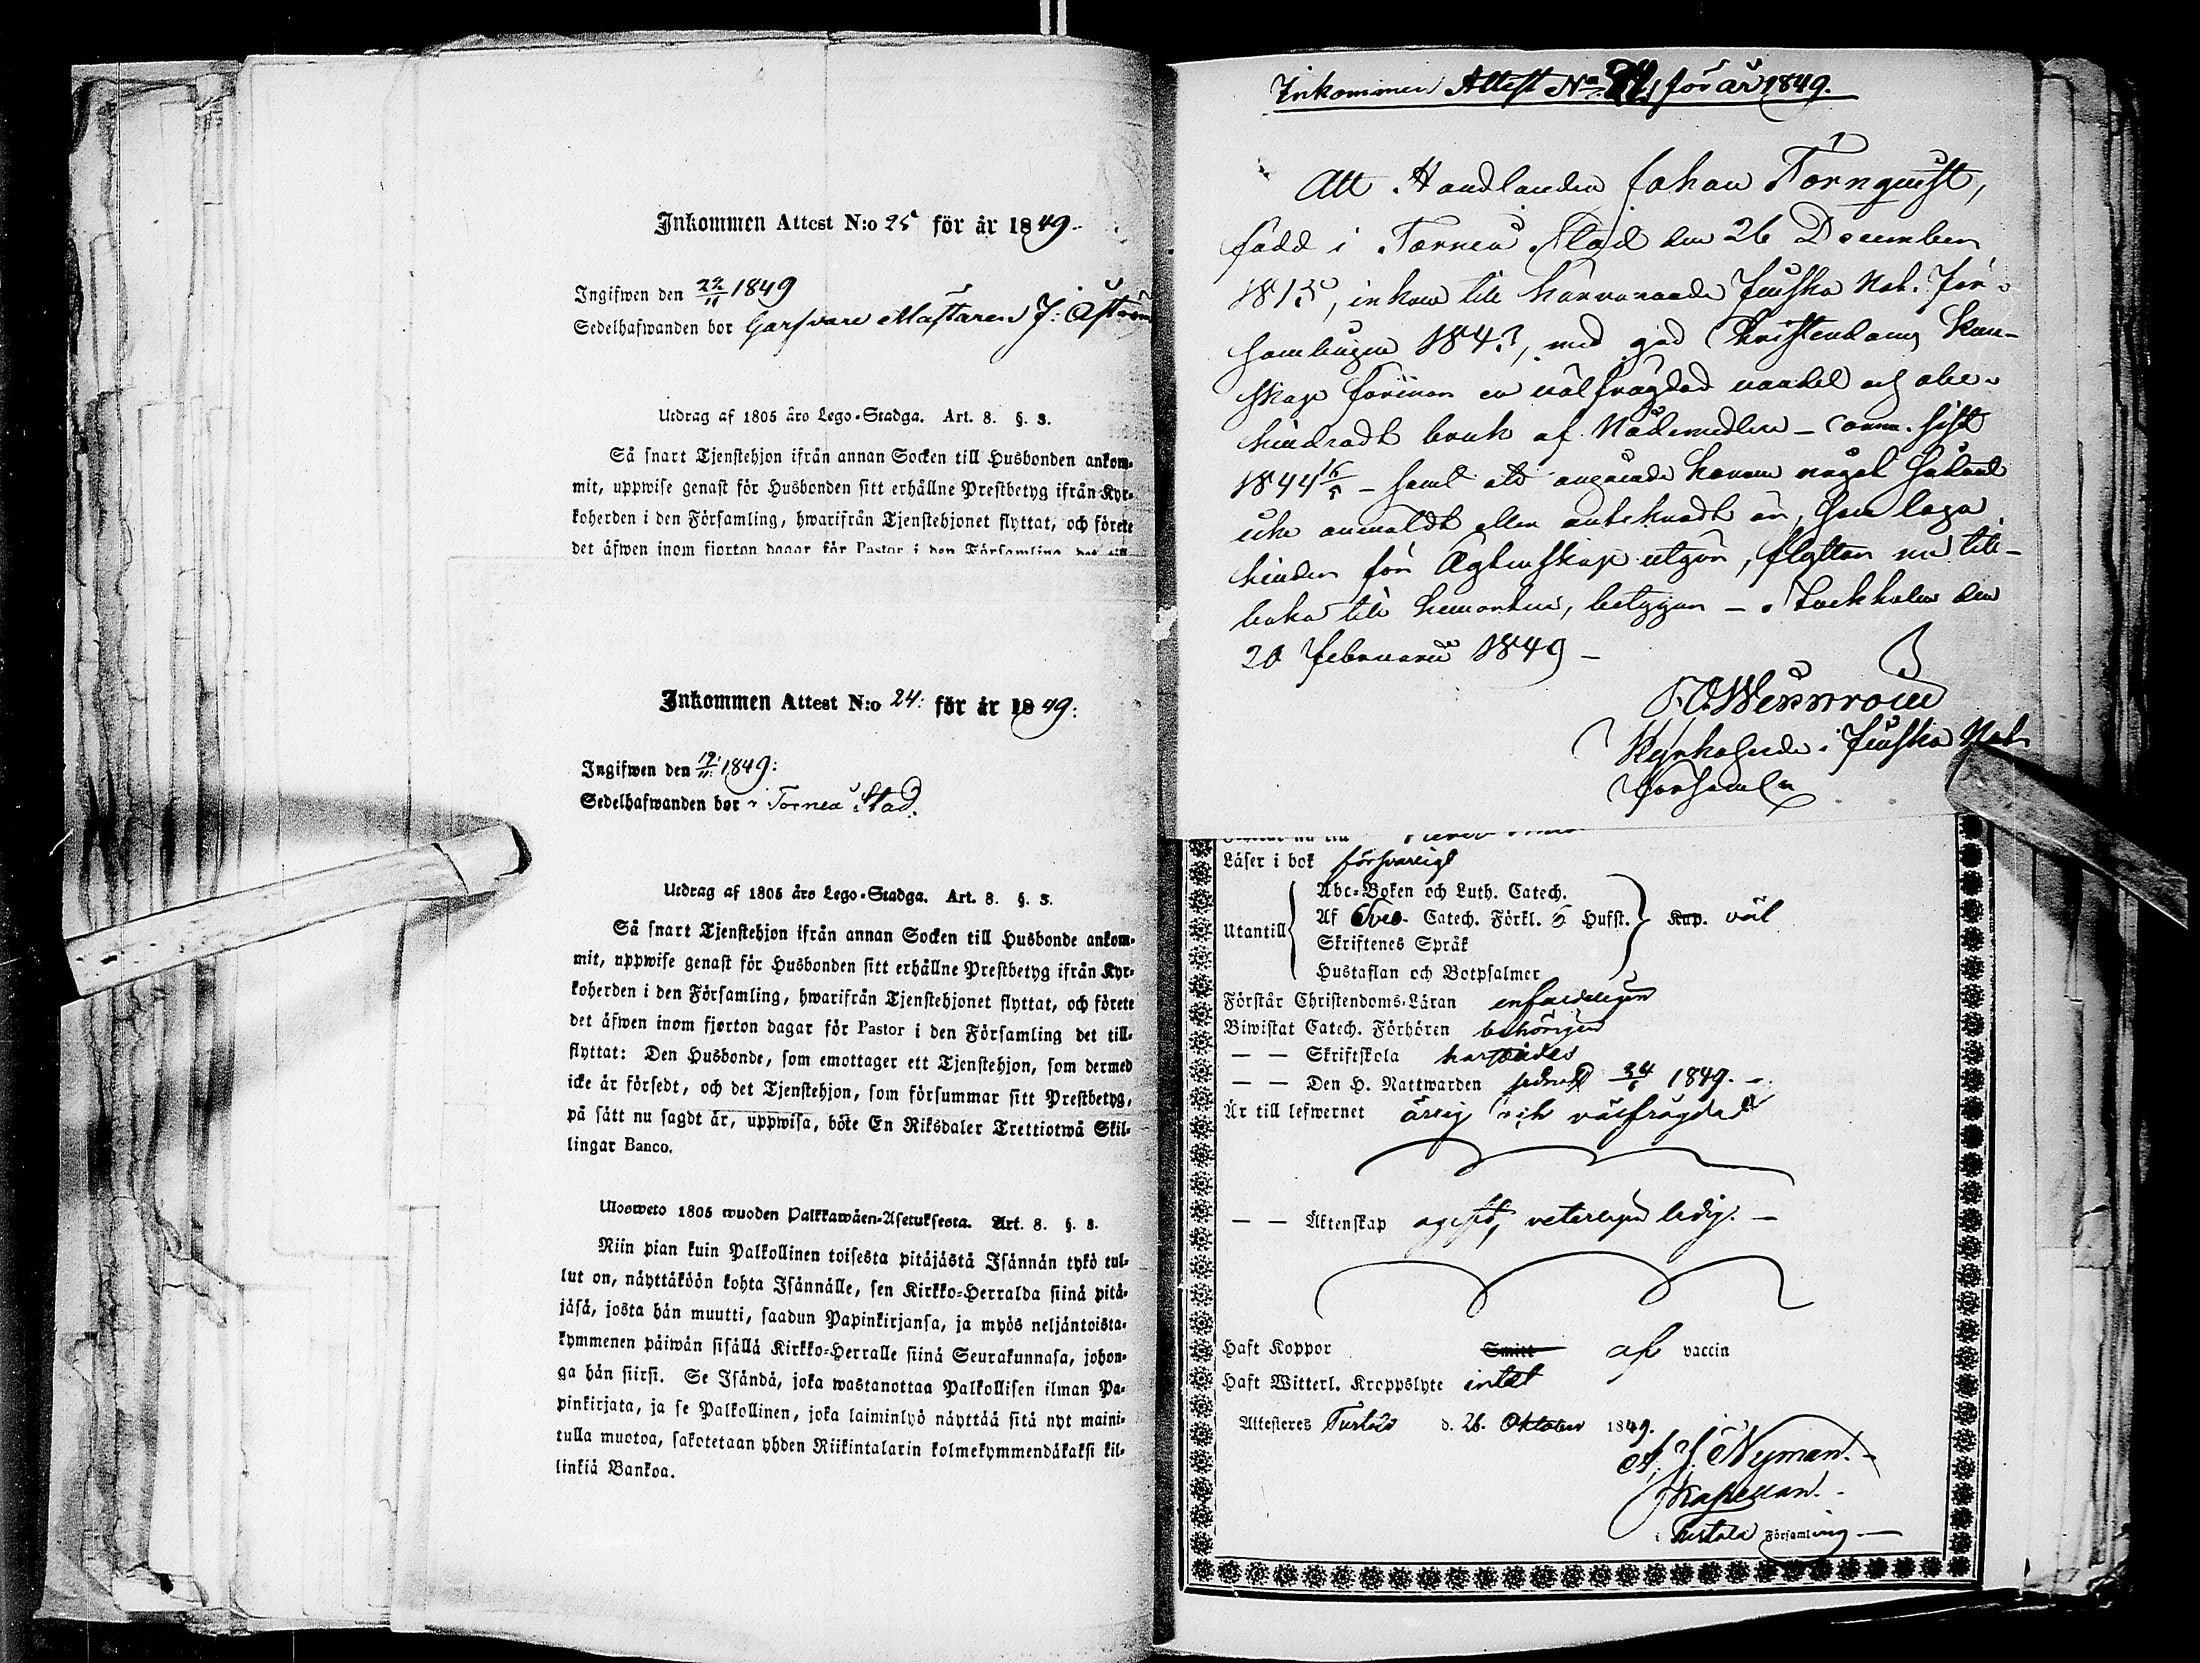 Inkommen Attest N:o 25 för år 1849.
Ingifwen den 22/11 1849
Sedelhafwanden bor Garfvare Mästaren J: Åström
Utdrag af 1805 års Lego-Stadga. Art. 8. §. 3.
Så snart Tjenstehjon ifrån annan Socken till Husbonden ankom-
mit, uppwise genast för Husbonden sitt erhållne Prestbetyg ifrån Kyr-
koherden i den Församling, hwarifrån Tjenstehjonet flyttat, och förete
det äfwen inom fjorton dagar för Pastor i den Församling det till-
Inkommen Attest N:o 24: för år 1849:
Ingifwen den 19/11: 1849:
Sedelhafwanden bor i Torneå Stad.
Utdrag af 1805 års Lego-Stadga. Art. 8. §. 3.
Så snart Tjenstehjon ifrån annan Socken till Husbonde ankom-
mit, uppwise genast för Husbonden sitt erhållne Prestbetyg ifrån Kyr-
koherden i den Församling, hwarifrån Tjenstehjonet flyttat, och förete
det äfwen inom fjorton dagar för Pastor i den Församling det till-
flyttat: Den Husbonde, som emottager ett Tjenstehjon, som dermed
icke är försedt, och det Tjenstehjon, som försummar sitt Prestbetyg,
på sätt nu sagdt är, uppwisa, böte En Riksdaler Trettiotwå Skil-
lingar Banco.
Ulosweto 1805 wuoden Palkkawäen-Asetuksesta. Art. 8. §. 3.
Niin pian kuin Palkollinen toisesta pitäjästä Isännän tykö tul-
lut on, näyttäköön kohta Isännälle, sen Kirkko-Herralda siinä pitä-
jäsä, josta hän muutti, saadun Papinkirjansa, ja myös neljäntoista-
kymmenen päiwän sisällä Kirkko-Herralle siinä Seurakunnasa, johon-
ga hän siirsi. Se Isändä, joka wastanottaa Palkollisen ilman Pa-
pinkirjata, ja se Palkollinen, joka laiminlyö näyttää sitä nyt maini-
tulla muotoa, sakotetaan yhden Riikintalarin kolmekymmendäkaksi kil-
linkiä Bankoa.
Inkommen Attest No för år 1849.
Att Handlanden Johan Törnquist,
född i Torneå Stad den 26 December
1813, inkom till härvarande Finska Nat. För-
samlingen 1843, med god Christendoms kun-
skap förenar en välfrägdad vandel och obe-
hindradt bruk af Nådemedlen – comm. sist
1844 16/5 – samt att angående honom något sådant
icke anmäldt eller antecknadt är, som laga
hinder för Ägtenskap utgör, flyttar nu till-
baka till hemorten, betygar – Stockholm den
20 Februarii 1849 –
Kyrkoherde i Finska Nat.
Församln
Läser i bok försvarligt
Utantill
Abc-Boken och Luth. Catech.
Af Sveb. Catech. Förkl. 5 Hufst. Kap. väl
Skriftenes Språk
Hustaflan och Botpsalmer
Förstår Christendoms-Läran enfaldeligen
Biwistat Catech. Förhören behörigen
— — Skriftskola
— — Den H. Nattwarden sednast 24/6 1849. –
Är till lefwernet ärlig och välfrägdad
— — Äktenskap ogift, veterligen ledig. –
Haft Koppor Smitt af vaccin
Haft Witterl. Kroppslyte intet
Attesteres Turtola d. 26. Oktober 1849.
A. J. Nyman. –
Kapellan. –
i Turtola Församling –